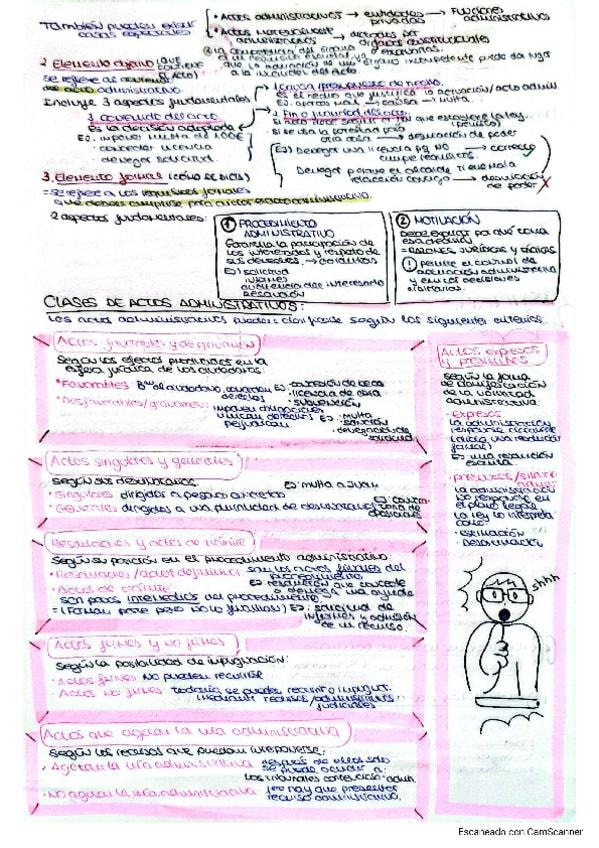 También pueden existir casos especiales
• Actos administrativos → entidades privadas → Funciones administrativas
• Actos materialmente administrativos → dictados por órganos constitucionales
2 Elemento objetivo (QUE CONTIENE EL ACTO)
se refiere al contenido del acto administrativo.
Incluye 3 aspectos fundamentales
1 causa (presupuesto de hecho).
Es el hecho que justifica la actuación/acto admin
Ej: aparcas mal → causa → multa.
2 Fin o finalidad del acto.
→ desviación de poder
Ej) Denegar una licencia pq NO cumple requisitos. → correcto ✓
Denegar porque el alcalde tiene mala relación contigo → desviación de poder X
3 contenido del acto
Es la decisión adoptada
Ej: imponer multa de 100€
- conceder licencia
- denegar solicitud
3. Elemento formal (CÓMO SE DICTA)
= se refiere a los requisitos formales que deben cumplirse para dictar el acto administrativo.
2 aspectos fundamentales:
① PROCEDIMIENTO ADMINISTRATIVO
Garantiza la participación de los interesados y respeto de sus derechos.
Ej: solicitud
informes
audiencia del interesado
Resolución
② MOTIVACIÓN
Debe explicar por qué toma esa decisión
- RAZONES JURÍDICAS y fácticas
① permite el control de actuación administrativa y evitar decisiones arbitrarias.
CLASES DE ACTOS ADMINISTRATIVOS:
Los actos administrativos pueden clasificarse según los siguientes criterios:
Actos favorables y de gravamen
Según los efectos producidos en la esfera jurídica de los ciudadanos:
• Favorables
Ej: - concesión de beca
- licencia de obra
- subvención
• Desfavorables/gravamen: imponen obligaciones
limitan derechos
perjudican
Ej: - multa
- sanción
- denegación de solicitud
Actos singulares y generales
Según sus destinatarios
• Singulares dirigidos a personas concretas
Ej: multa a Juan
• Generales dirigidos a una pluralidad de destinatarios
Resoluciones y actos de trámite
Según su posición en el procedimiento administrativo.
• Resoluciones/actos definitivos son los actos finales del procedimiento
Ej: resolución que concede o deniega una ayuda
• Actos de trámite
son pasos intermedios del procedimiento
= (Forman parte pero no lo finalizan) Ej: solicitud de informes y admisión de un recurso.
Actos firmes y no firmes
Según la posibilidad de impugnación:
• Actos firmes No pueden recurrirse
• Actos no firmes todavía se pueden recurrir o impugnar
mediante recursos administrativos/judiciales
Actos que agotan la vía administrativa
Según los recursos que puedan interponerse:
• Agotan la vía administrativa después de ellos solo se puede acudir a los tribunales contencioso-admin.
• No agotan la vía administrativa hay que presentar recurso administrativo.
Actos expresos y presuntos
Según la forma de manifestación de la voluntad administrativa:
• expresos
la administración responde
Ej: una resolución escrita
• presuntos/silencio
La administración no responde en el plazo legal.
La ley lo interpreta como
- estimación
- Desestimación
shhh
Escaneado con CamScanner